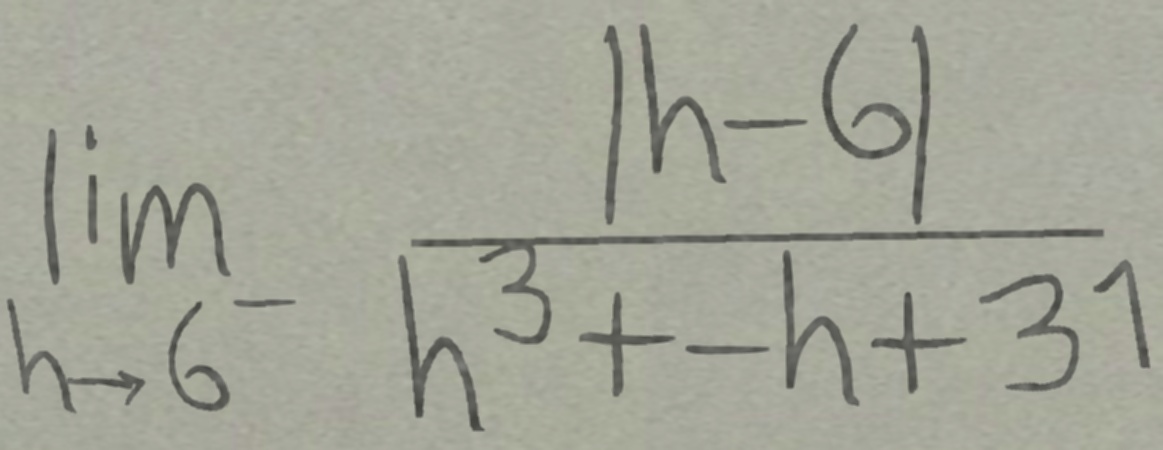 lim h→6⁻ |h-6| / h³+-h+31